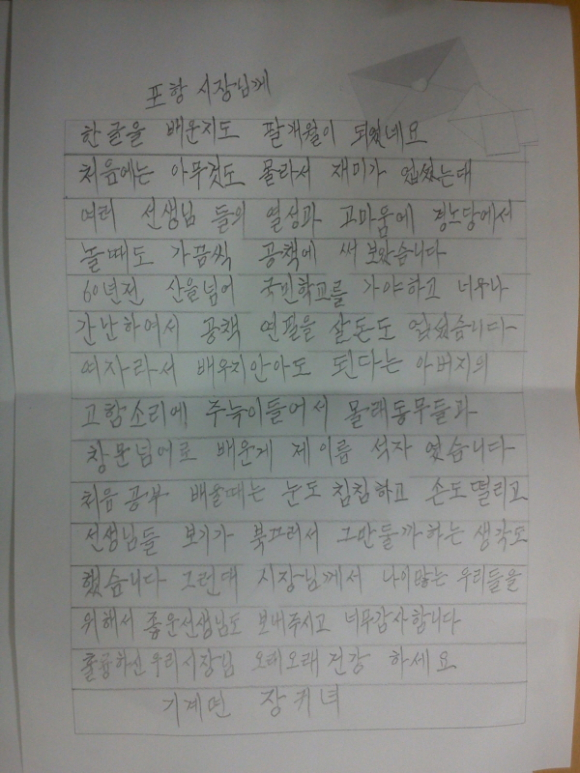 포항 시장님께
한글을 배운지도 팔개월이 되었네요
처음에는 아무것도 몰라서 재미가 업썼는대
여러 선생님 들의 열성과 고마움에 경노당에서
놀때도 가끔씩 공책에 써 보았습니다
60년전 산을넘어 국민학교를 가야하고 너무나
간난하여서 공책 연필을 살돈도 업섰습니다
여자라서 배우지안아도 된다는 아버지의
고함소리에 주눅이들어서 몰래동무들과
창문넘어로 배운게 제이름 석자 였습니다
처음 공부 배울때는 눈도 침침하고 손도떨리고
선생님들 보기가 북끄러서 그만둘까하는 생각도
했습니다 그런대 시장님께서 나이많은 우리들을
위해서 좋운선생님도 보내주시고 너무감사합니다
훌륭하신우리시장님 오래오래건강 하세요
기계면 장귀녀